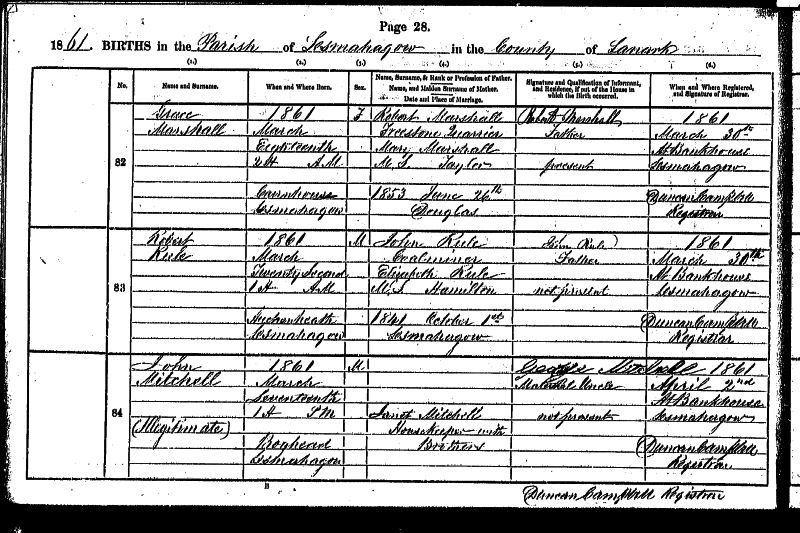 Page 28.
1861. BIRTHS in the Parish of Lesmahagow in the County of Lanark
(1.) (2.) (3.) (4.) (5.) (6.)
No. Name and Surname. When and Where Born. Sex. Name, Surname, & Rank or Profession of Father. Name, and Maiden Surname of Mother. Date and Place of Marriage. Signature and Qualification of Informant, and Residence, if out of the House in which the Birth occurred. When and Where Registered, and Signature of Registrar.
82
Grace
Marshall
1861
March
Eighteenth
2H AM
Cairnhouse
Lesmahagow
F
Robert Marshall
Freestone Quarrier
Mary Marshall
M.S. Taylor
1853 June 26th
Douglas
Robert Marshall
Father
present
1861
March 30th
At Bankhouse
Lesmahagow
Duncan Campbell
Registrar
83
Robert
Rule
1861
March
Twenty Second
1H AM
Auchenheath
Lesmahagow
M
John Rule
Coalminer
Elizabeth Rule
M.S. Hamilton
1841 October 1st
Lesmahagow
John Rule
Father
not present
1861
March 30th
At Bankhouse
Lesmahagow
Duncan Campbell
Registrar
84
John
Mitchell
(Illegitimate)
1861
March
Seventeenth
1H PM
Boghead
Lesmahagow
M
Janet Mitchell
Housekeeper with
Brothers
George Mitchell
Uncle
not present
1861
April 2nd
At Bankhouse
Lesmahagow
Duncan Campbell
Registrar
Duncan Campbell Registrar